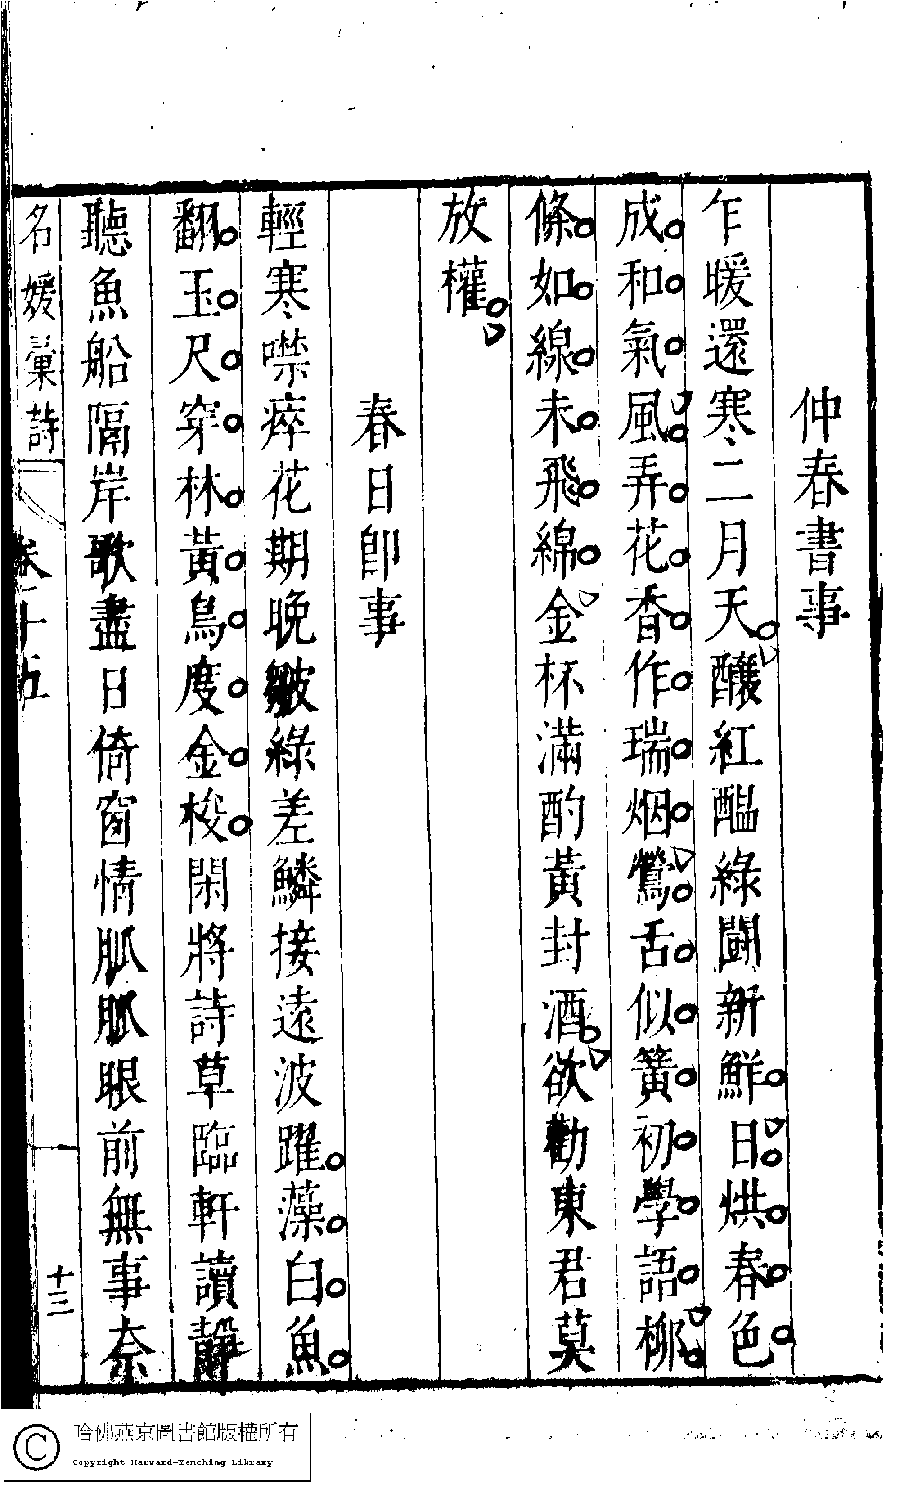 仲春書事
乍暖還寒二月天釀紅醖綠鬪新鮮日烘春色
成和氣風弄花香作瑞烟鶯舌似簧初學語栁
條如線未飛綿金杯滿酌黃封酒欲勸東君莫
放權
春日卽事
輕寒噤瘁花期晚皺綠差鱗接遠波躍藻白魚
翻玉尺穿林黃鳥度金梭閑將詩草臨軒讀靜
聽魚船隔岸歌盡日倚窗情脈脈眼前無事奈
名媛彙詩
卷十五
十三
哈佛燕京圖書館版權所有
Copyright Harvard-Yenching Library